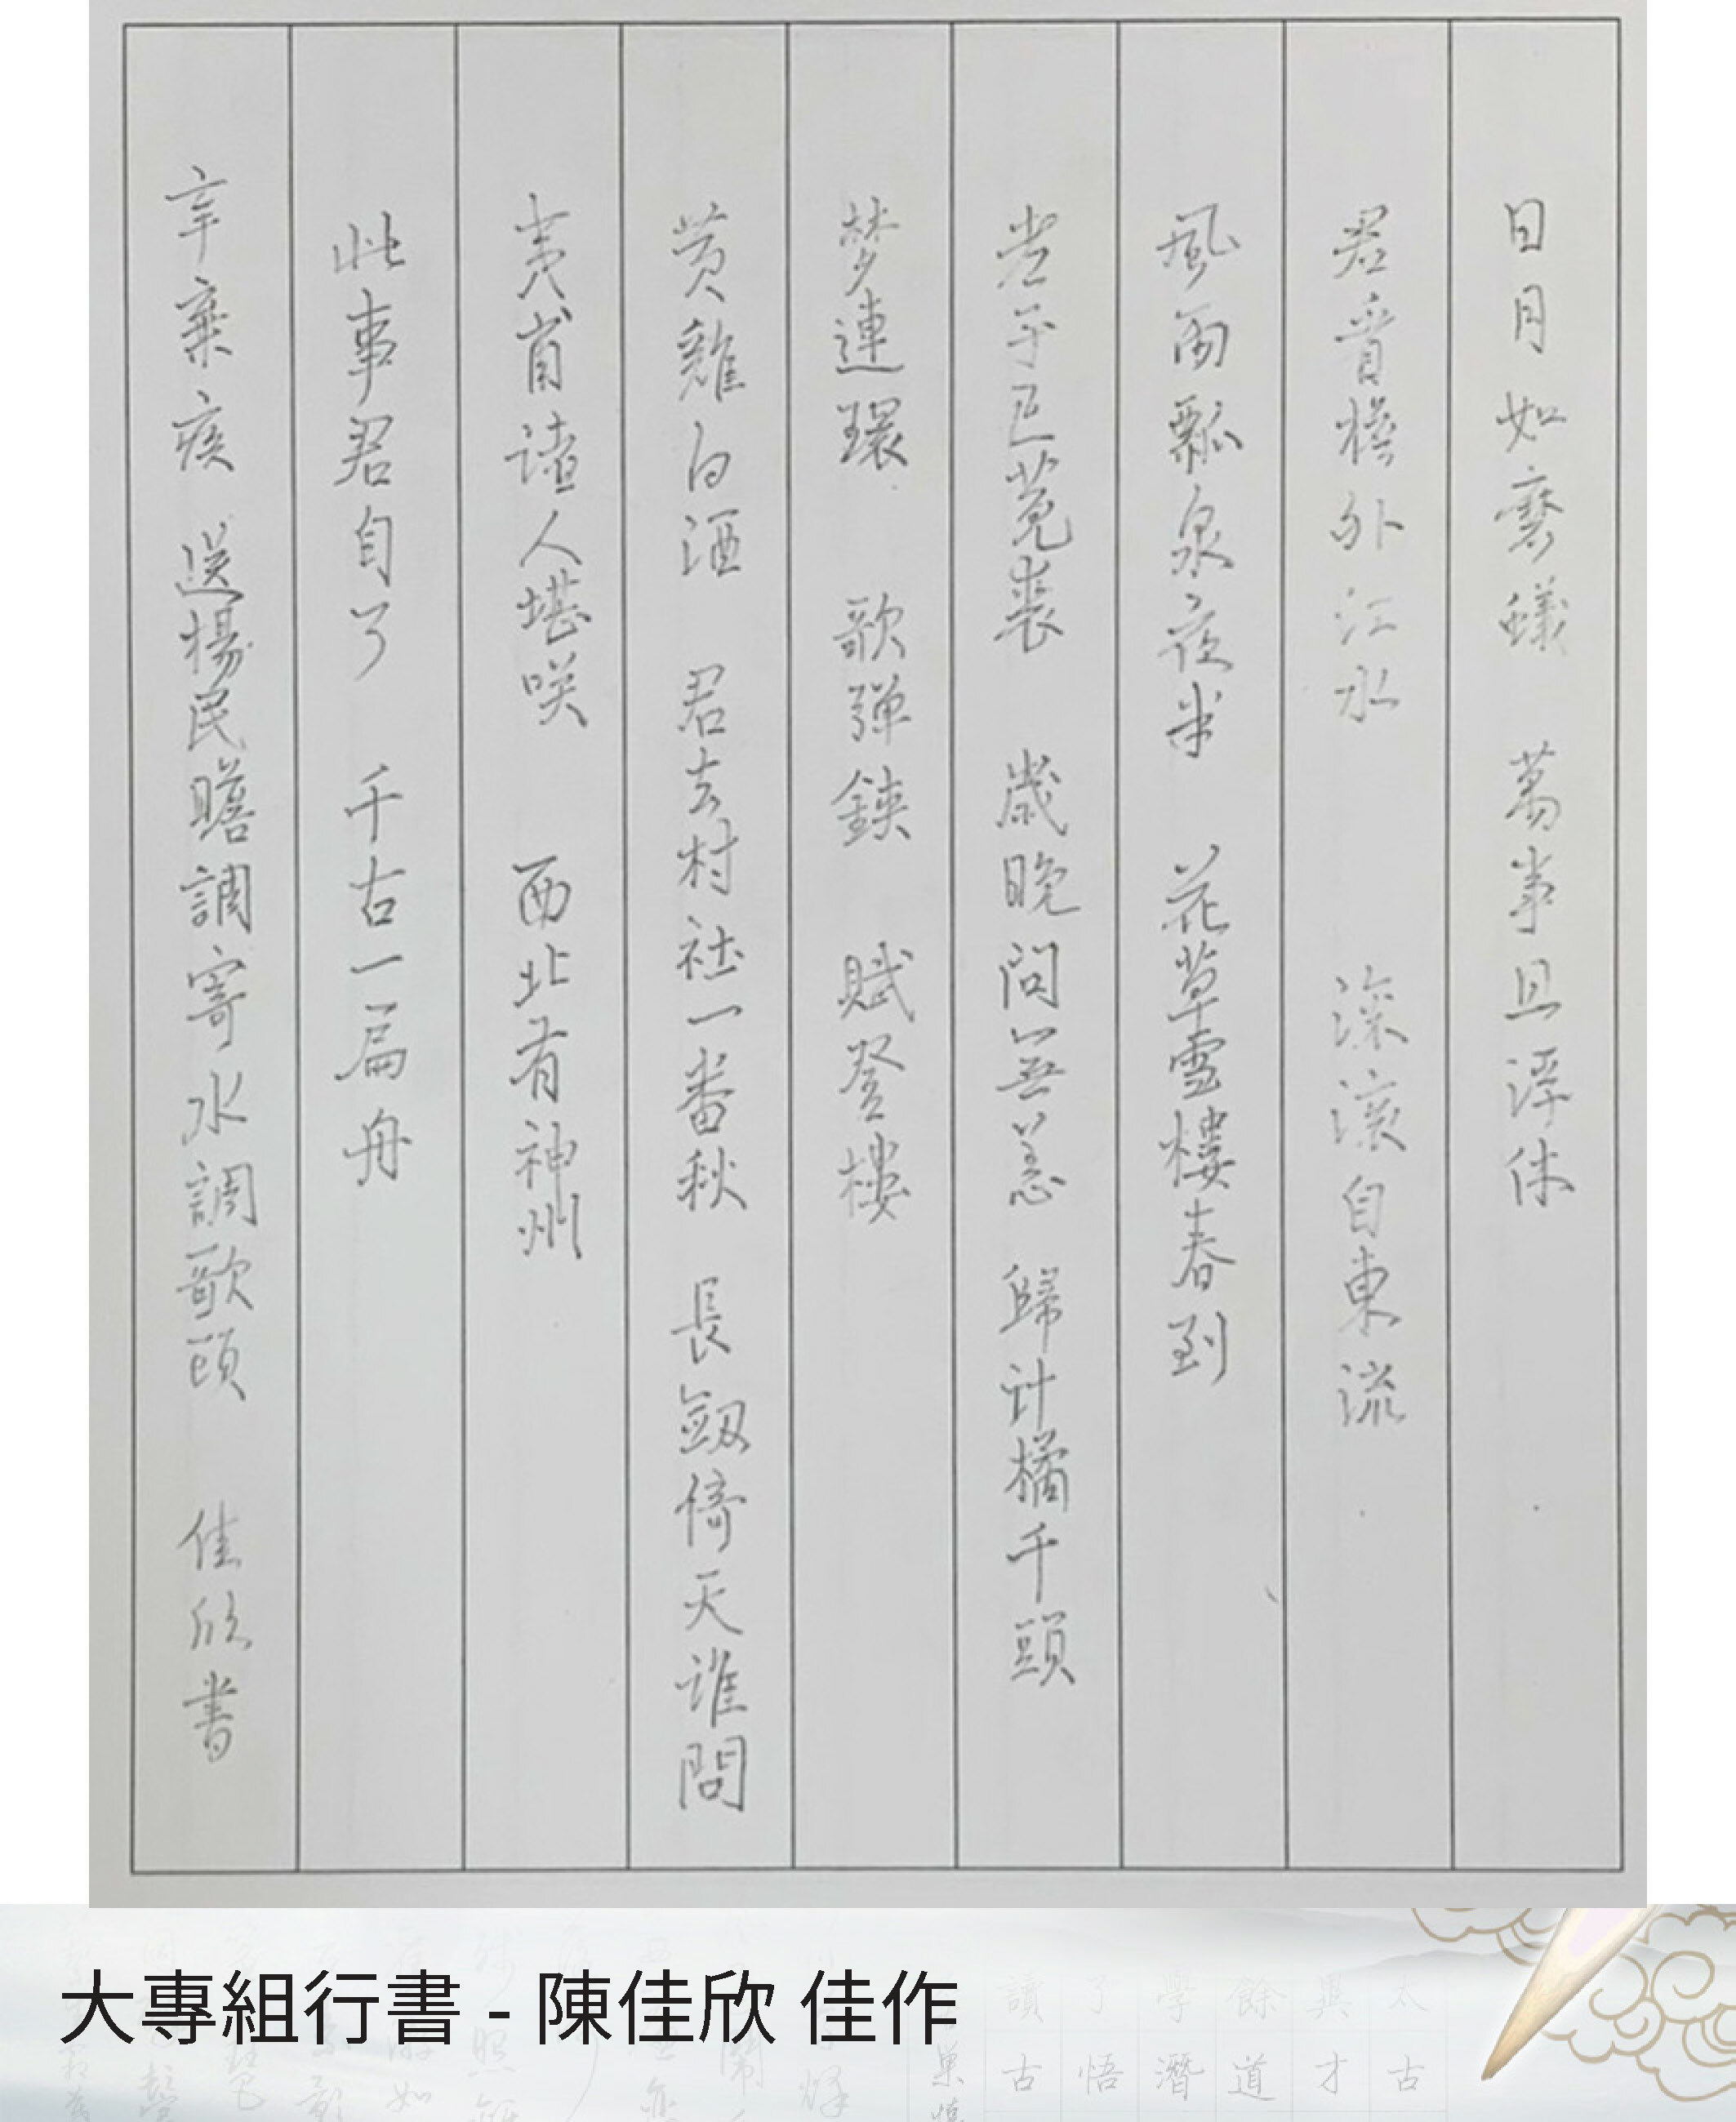 日月如磨蟻 萬事且浮休
君看檐外江水 滾滾自東流
風雨瓢泉夜半 花草雪樓春到
老子已菟裘 歲晚問無恙 歸計橘千頭
梦連環 歌彈鋏 賦登樓
黃雞白酒 君去村社一番秋 長劔倚天誰問
夷甫諸人堪咲 西北有神州
此事君自了 千古一扁舟
辛棄疾 送楊民瞻調寄水調歌頭 佳欣書
大專組行書 - 陳佳欣 佳作
太與餘學了讀
古才道潛悟古